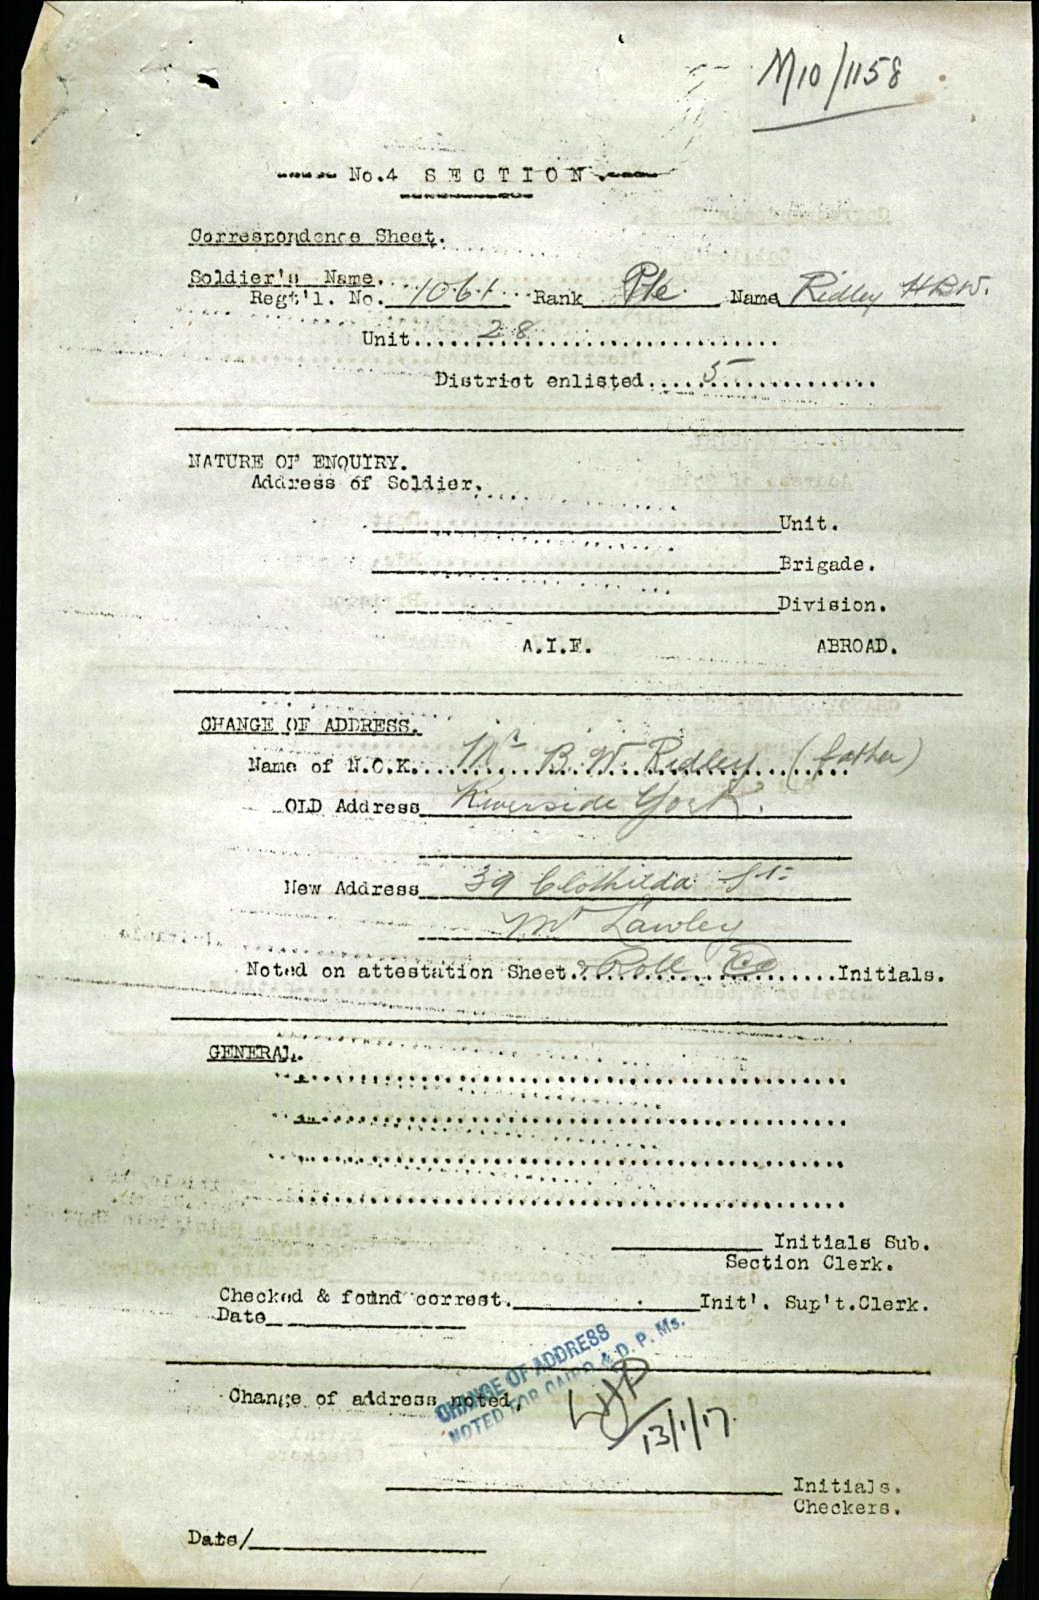 M10/1158
No.4 SECTION.
Correspondence Sheet.
Soldier's Name.
Regt'l. No. 1061 Rank Pte Name Ridley H.B.W.
Unit 28
District enlisted 5
NATURE OF ENQUIRY.
Address of Soldier.
Unit.
Brigade.
Division.
A.I.F. ABROAD.
CHANGE OF ADDRESS.
Name of N.O.K. Mr B. W. Ridley (father)
OLD Address Riverside York.
New Address 39 Clothilda St
Mt Lawley
Noted on attestation Sheet. & Roll Initials.
GENERAL.
Initials Sub.
Section Clerk.
Checked & found correst. Init'. Sup't.Clerk.
Date
CHANGE OF ADDRESS
NOTED FOR CAIRO & D. P. Ms.
Change of address noted,
13/1/17.
Initials.
Checkers.
Date/